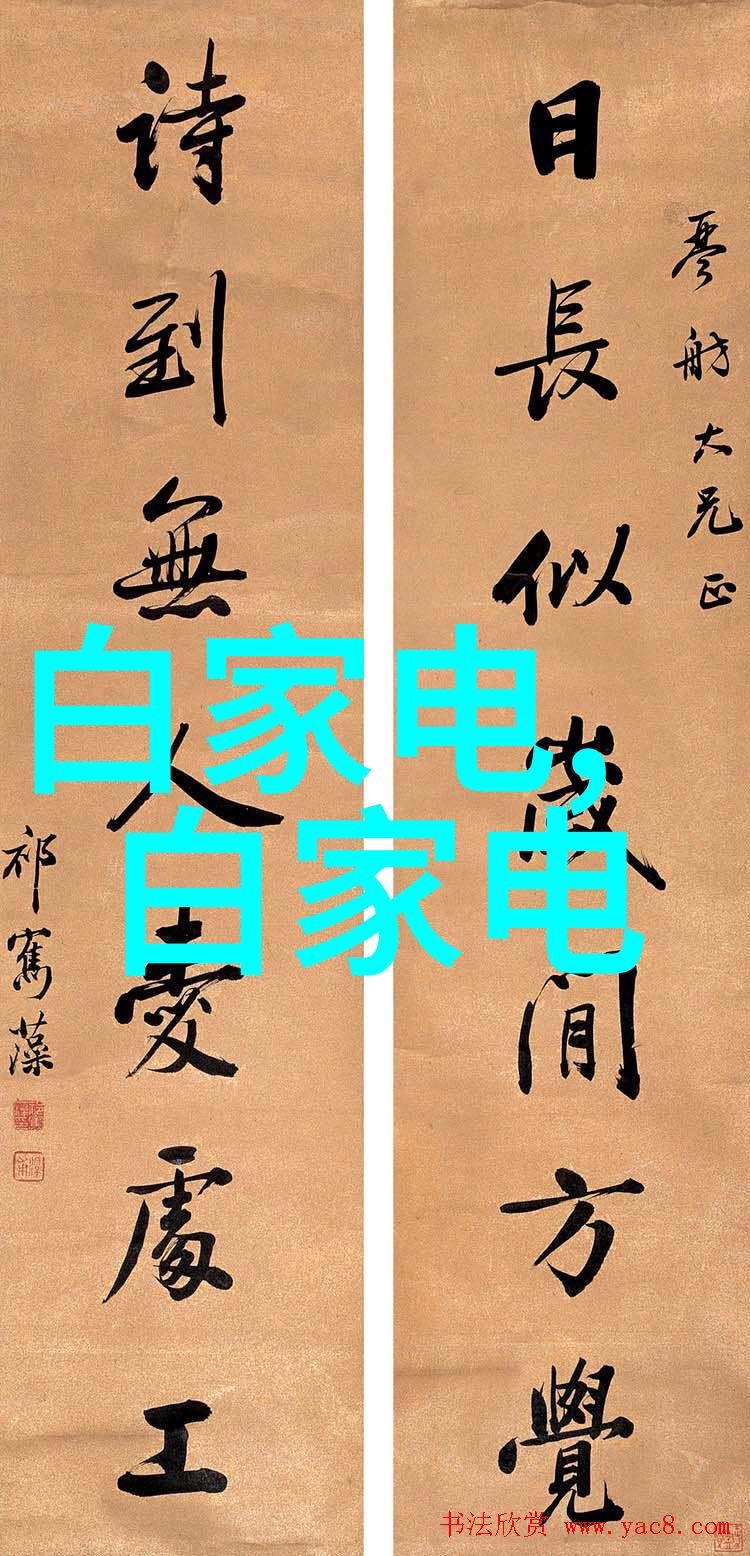 琴舫大兄正
日長似歲閒方覺
詩到無人愛處工
祁寯藻
白家电,
白家电
书法欣赏 www.yac8.com